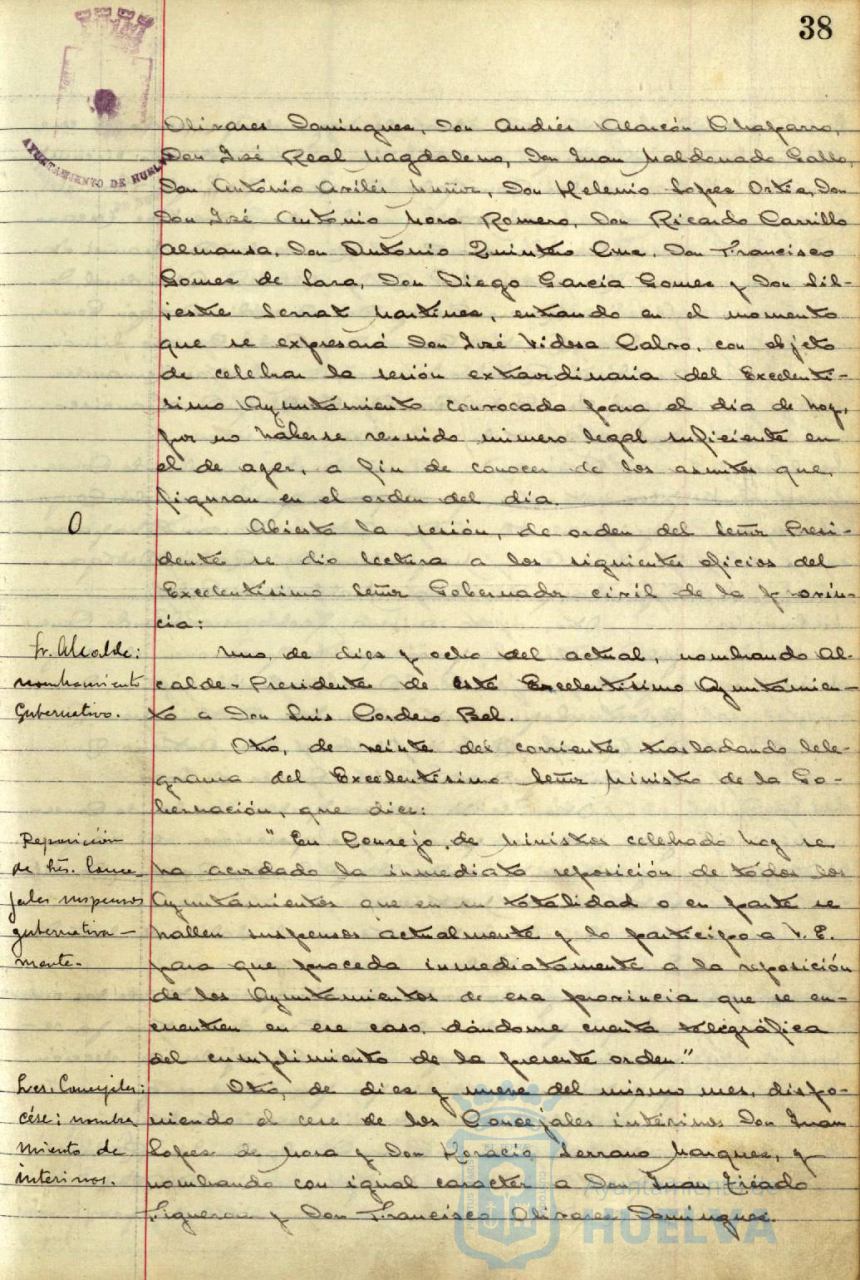 38
AYUNTAMIENTO DE HUELVA
Olivares Domínguez, Don Andrés Alarcón Chaparro,
Don José Real Magdaleno, Don Juan Maldonado Gallo,
Don Antonio Avilés Muñoz, Don Helenio Lopez Ortiz, Don
Don José Antonio Mora Romero, Don Ricardo Carrillo
Almansa, Don Antonio Quintero Cruz, Don Francisco
Gomez de Lara, Don Diego García Gomez y Don Sil-
vestre Serrat Martínez, entrando en el momento
que se expresará Don José Vidosa Calvo, con objeto
de celebrar la sesión extraordinaria del Excelentí-
simo Ayuntamiento convocada para el día de hoy,
por no haberse reunido número legal suficiente en
el de ayer, a fin de conocer de los asuntos que
figuran en el orden del día.
O
Abierta la sesión, de orden del Señor Presi-
dente se dio lectura a los siguientes oficios del
Excelentísimo Señor Gobernador civil de la provin-
cia:
Sr. Alcalde:
nombramiento
Gubernativo.
Uno, de diez y ocho del actual, nombrando Al-
calde-Presidente de este Excelentísimo Ayuntamien-
to a Don Luis Cordero Bel.
Otro, de veinte del corriente trasladando tele-
grama del Excelentísimo Señor Ministro de la Go-
bernación, que dice:
Reposición
de Sres. Conce-
jales suspensos
gubernativa-
mente.
"En Consejo de Ministros celebrado hoy se
ha acordado la inmediata reposición de todos los
Ayuntamientos que en su totalidad o en parte se
hallen suspensos actualmente y lo participo a V. E.
para que proceda inmediatamente a la reposición
de los Ayuntamientos de esa provincia que se en-
cuentren en ese caso, dándome cuenta telegráfica
del cumplimiento de la presente orden."
Sres. Concejales:
cése; nombra
miento de
interinos.
Otro, de diez y nueve del mismo mes, dispo-
niendo el cese de los Concejales interinos Don Juan
Lopez de Mora y Don Horacio Serrano Marquez, y
nombrando con igual caracter a Don Juan Tirado
Figueroa y Don Francisco Olivares Domínguez.
Ayuntamiento de
HUELVA